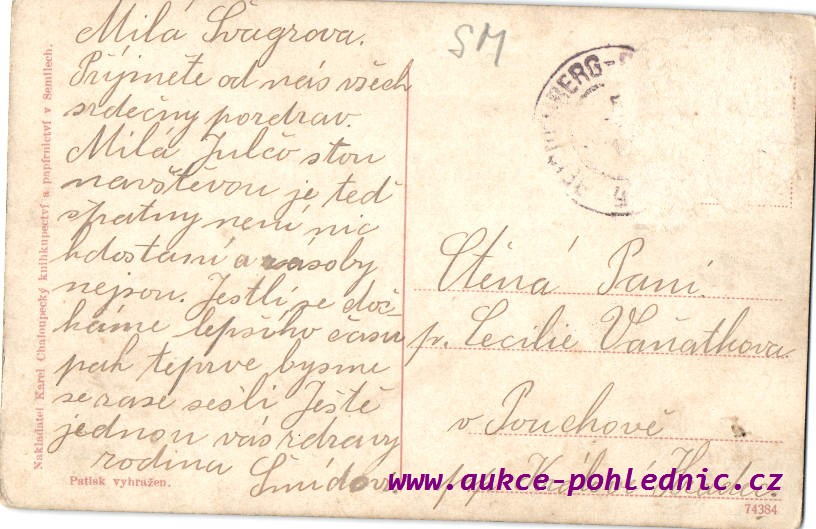 Milá Švagrova.
Přijmete od nás všech
srdečny pozdrav.
Milá Julčo s tou
navštěvou je teď
špatny není nic
kdostaní a zásoby
nejsou. Jestli se doč-
káme lepšího času
pak teprve bysme
se zase sešli Ještě
jednou vás zdravy
rodina Šmídova
SM
BERG-
Ctěná Paní.
p. Cecilie Vaňatkova.
v Pouchově
p. p. Králové Hradec
Nakladatel Karel Chaloupecký knihkupectví a papírnictví v Semilech.
Patisk vyhražen.
74384
www.aukce-pohlednic.cz